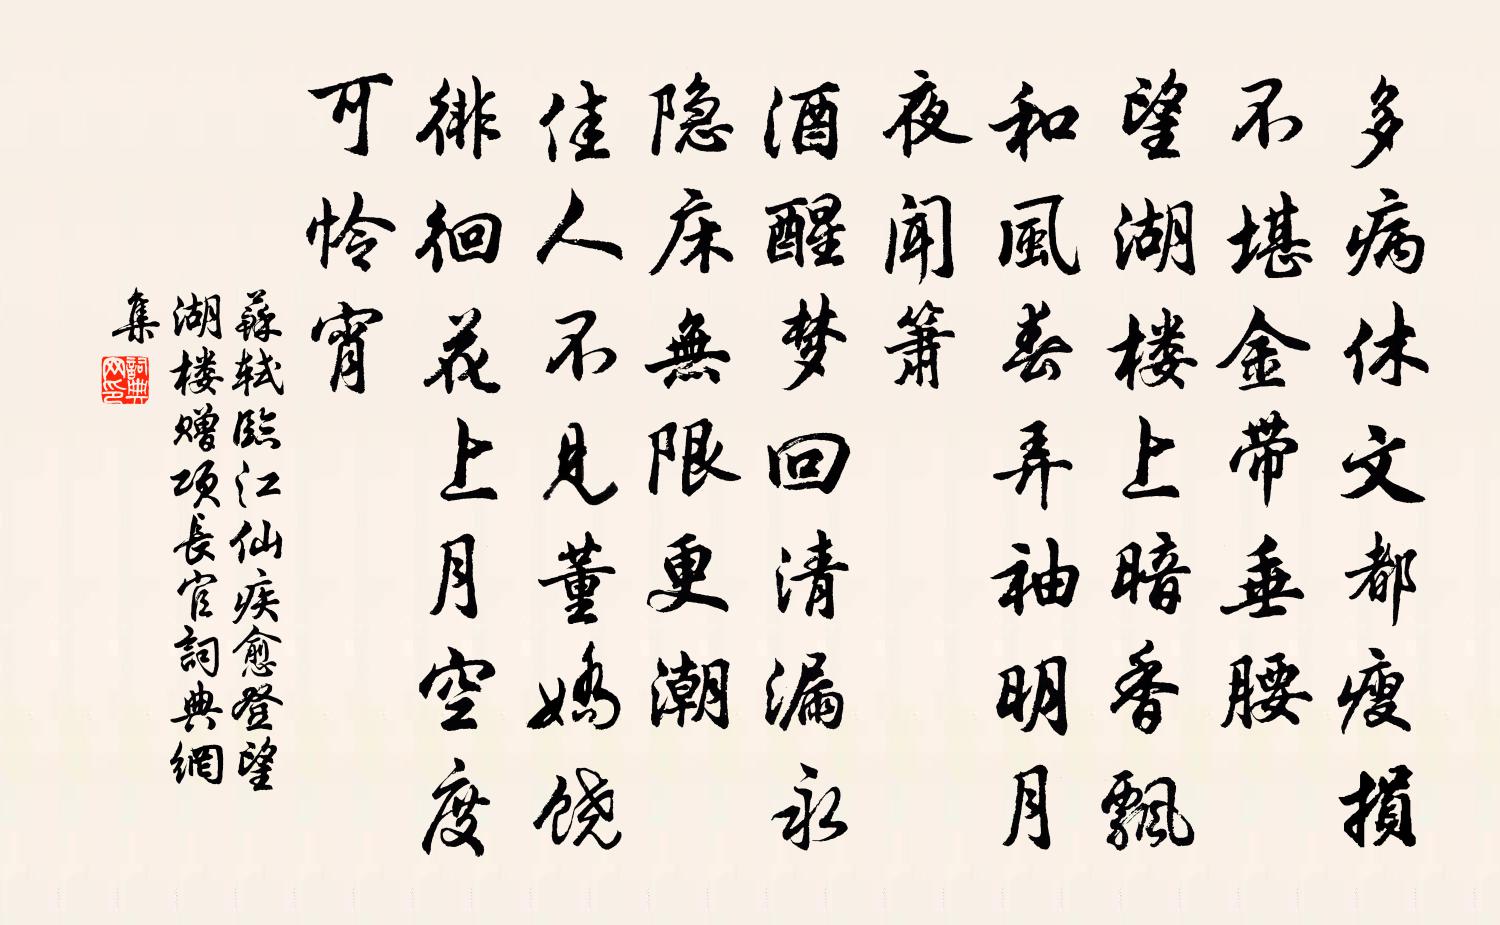 多病休文都瘦損
不堪金带垂腰
望湖楼上暗香飄
和風春弄袖明月
夜闻箫
酒醒梦回清漏永
隐床無限更潮
佳人不見董嬌饶
徘徊花上月空度
可怜宵
蘇轼臨江仙疾愈登望
湖楼赠项長官詞典網
集
詞典
网印